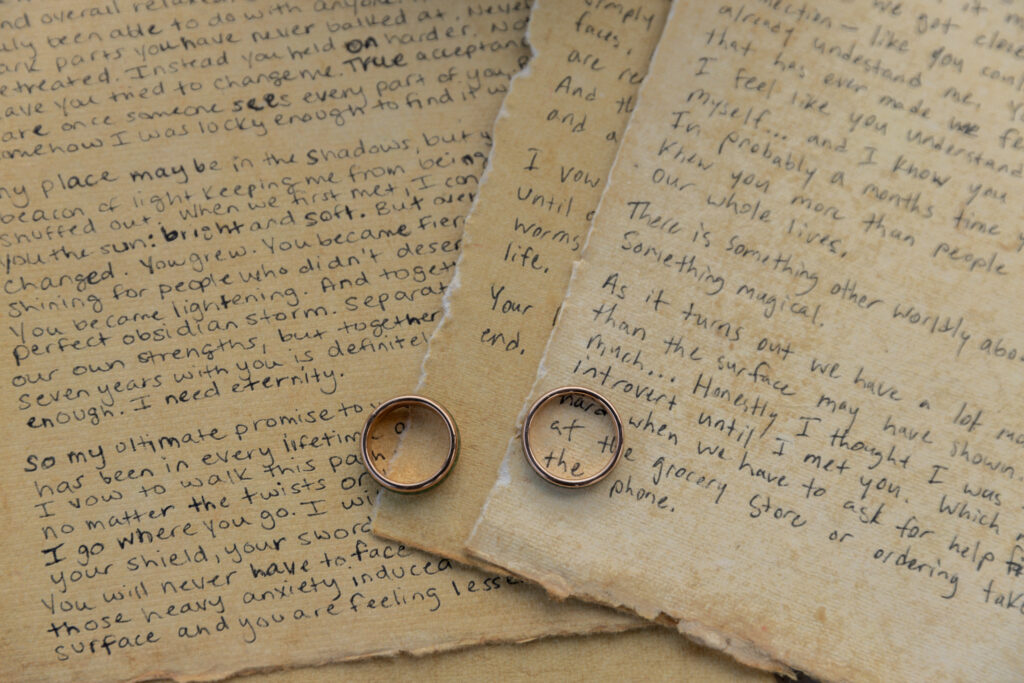 and overall relaxed
been able to do with anyone
parts you have never balked at. Never
retreated. Instead you held on harder. No
have you tried to change me. True acceptance
are once someone sees every part of you
somehow I was locky enough to find it
my place may be in the shadows, but
beacon of light keeping me from being
snuffed out. When we first met, I
you the sun: bright and soft. But over
changed. You grew. You became
shining for people who didn't
You became lightening. And
perfect obsidian storm.
our own strengths, but together
seven years with you is
enough. I need eternity.
So my ultimate promise to
has been in every
I vow to walk this
no matter the twists or
I go where you go. I
your shield, your sword
You will never have to face
those heavy anxiety induced
surface and you are feeling
simply
faces.
are
And
and a
I vow
until
worms
life.
Your
end.
we got
like you
already understand me.
that has ever made me
I feel like you understand
myself... and I know you
In probably a months time
knew you more than people
our whole lives.
There is something other worldly
Something magical.
As it turns out we have a lot
than the surface may have shown.
much... Honestly I thought I was
introvert until I met you. Which
hard when we have to ask for help
at the grocery store or ordering
the phone.